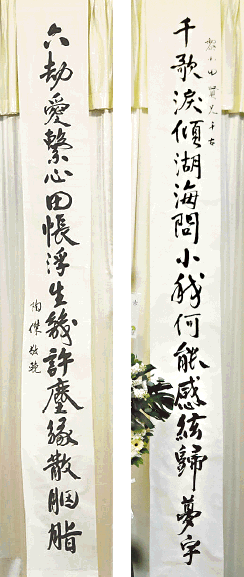 黎小田賢兄千古
千歌淚傾湖海問小我何能感絃歸夢宇
六劫愛繫心田悵浮生幾許塵緣散胭脂
陶傑敬輓